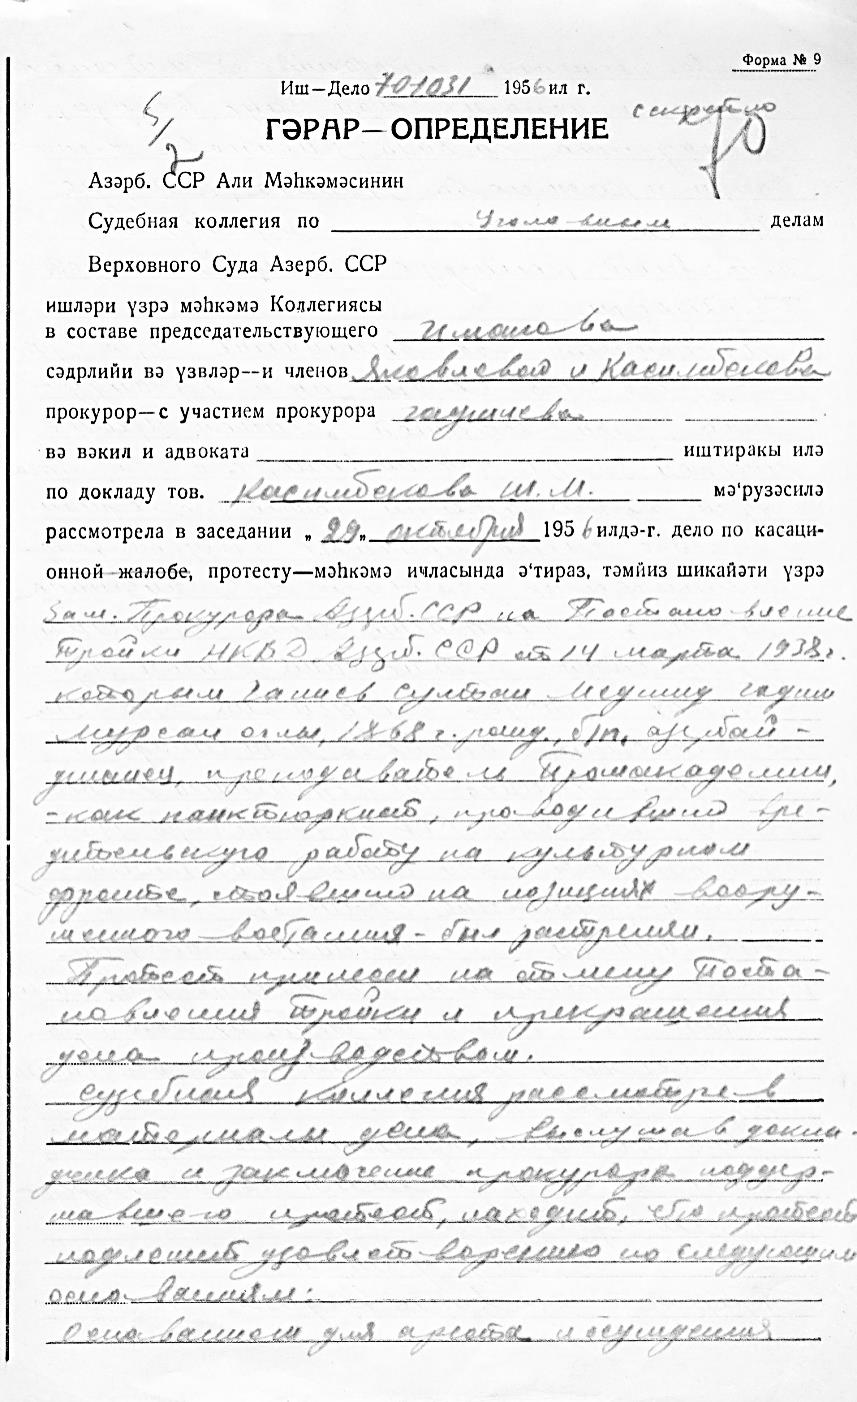 Форма № 9
Иш—Дело 701031 1956 ил г.
секретно
70
ГӘРАР—ОПРЕДЕЛЕНИЕ
Азәрб. ССР Али Мәһкәмәсинин
Судебная коллегия по уголовным делам
Верховного Суда Азерб. ССР
ишләри үзрә мәһкәмә Коллегиясы
в составе председательствующего Имамова
сәдрлийи вә үзвләр—и членов Яковлевой и Касимбекова
прокурор—с участием прокурора
вә вәкил и адвоката иштиракы илә
по докладу тов. Касимбекова Ш. М. мә'рузәсилә
рассмотрела в заседании „29„ октября 1956 илдә-г. дело по касаци-
онной жалобе, протесту—мәһкәмә ичласында ә'тираз, тәмйиз шикайәти үзрә
Зам. Прокурора Азерб. ССР на Постановление
Тройки НКВД Азерб. ССР от 14 марта 1938 г.
которым Ганиев Султан Меджид Гаджи
Мурсал оглы, 1868 г. рожд., б/п, азербай-
джанец, преподаватель Промакадемии,
-как пантюркист, проводивший вре-
дительскую работу на культурном
фронте, стоявший на позициях воору-
женного восстания - был расстрелян.
Протест принесен на отмену Поста-
новления Тройки и прекращения
дела производством.
Судебная коллегия рассмотрев
материалы дела, выслушав доклад-
чика и заключение прокурора поддер-
жавшего протест, находит, что протест
подлежит удовлетворению по следующим
основаниям:
Основанием для ареста и осуждения